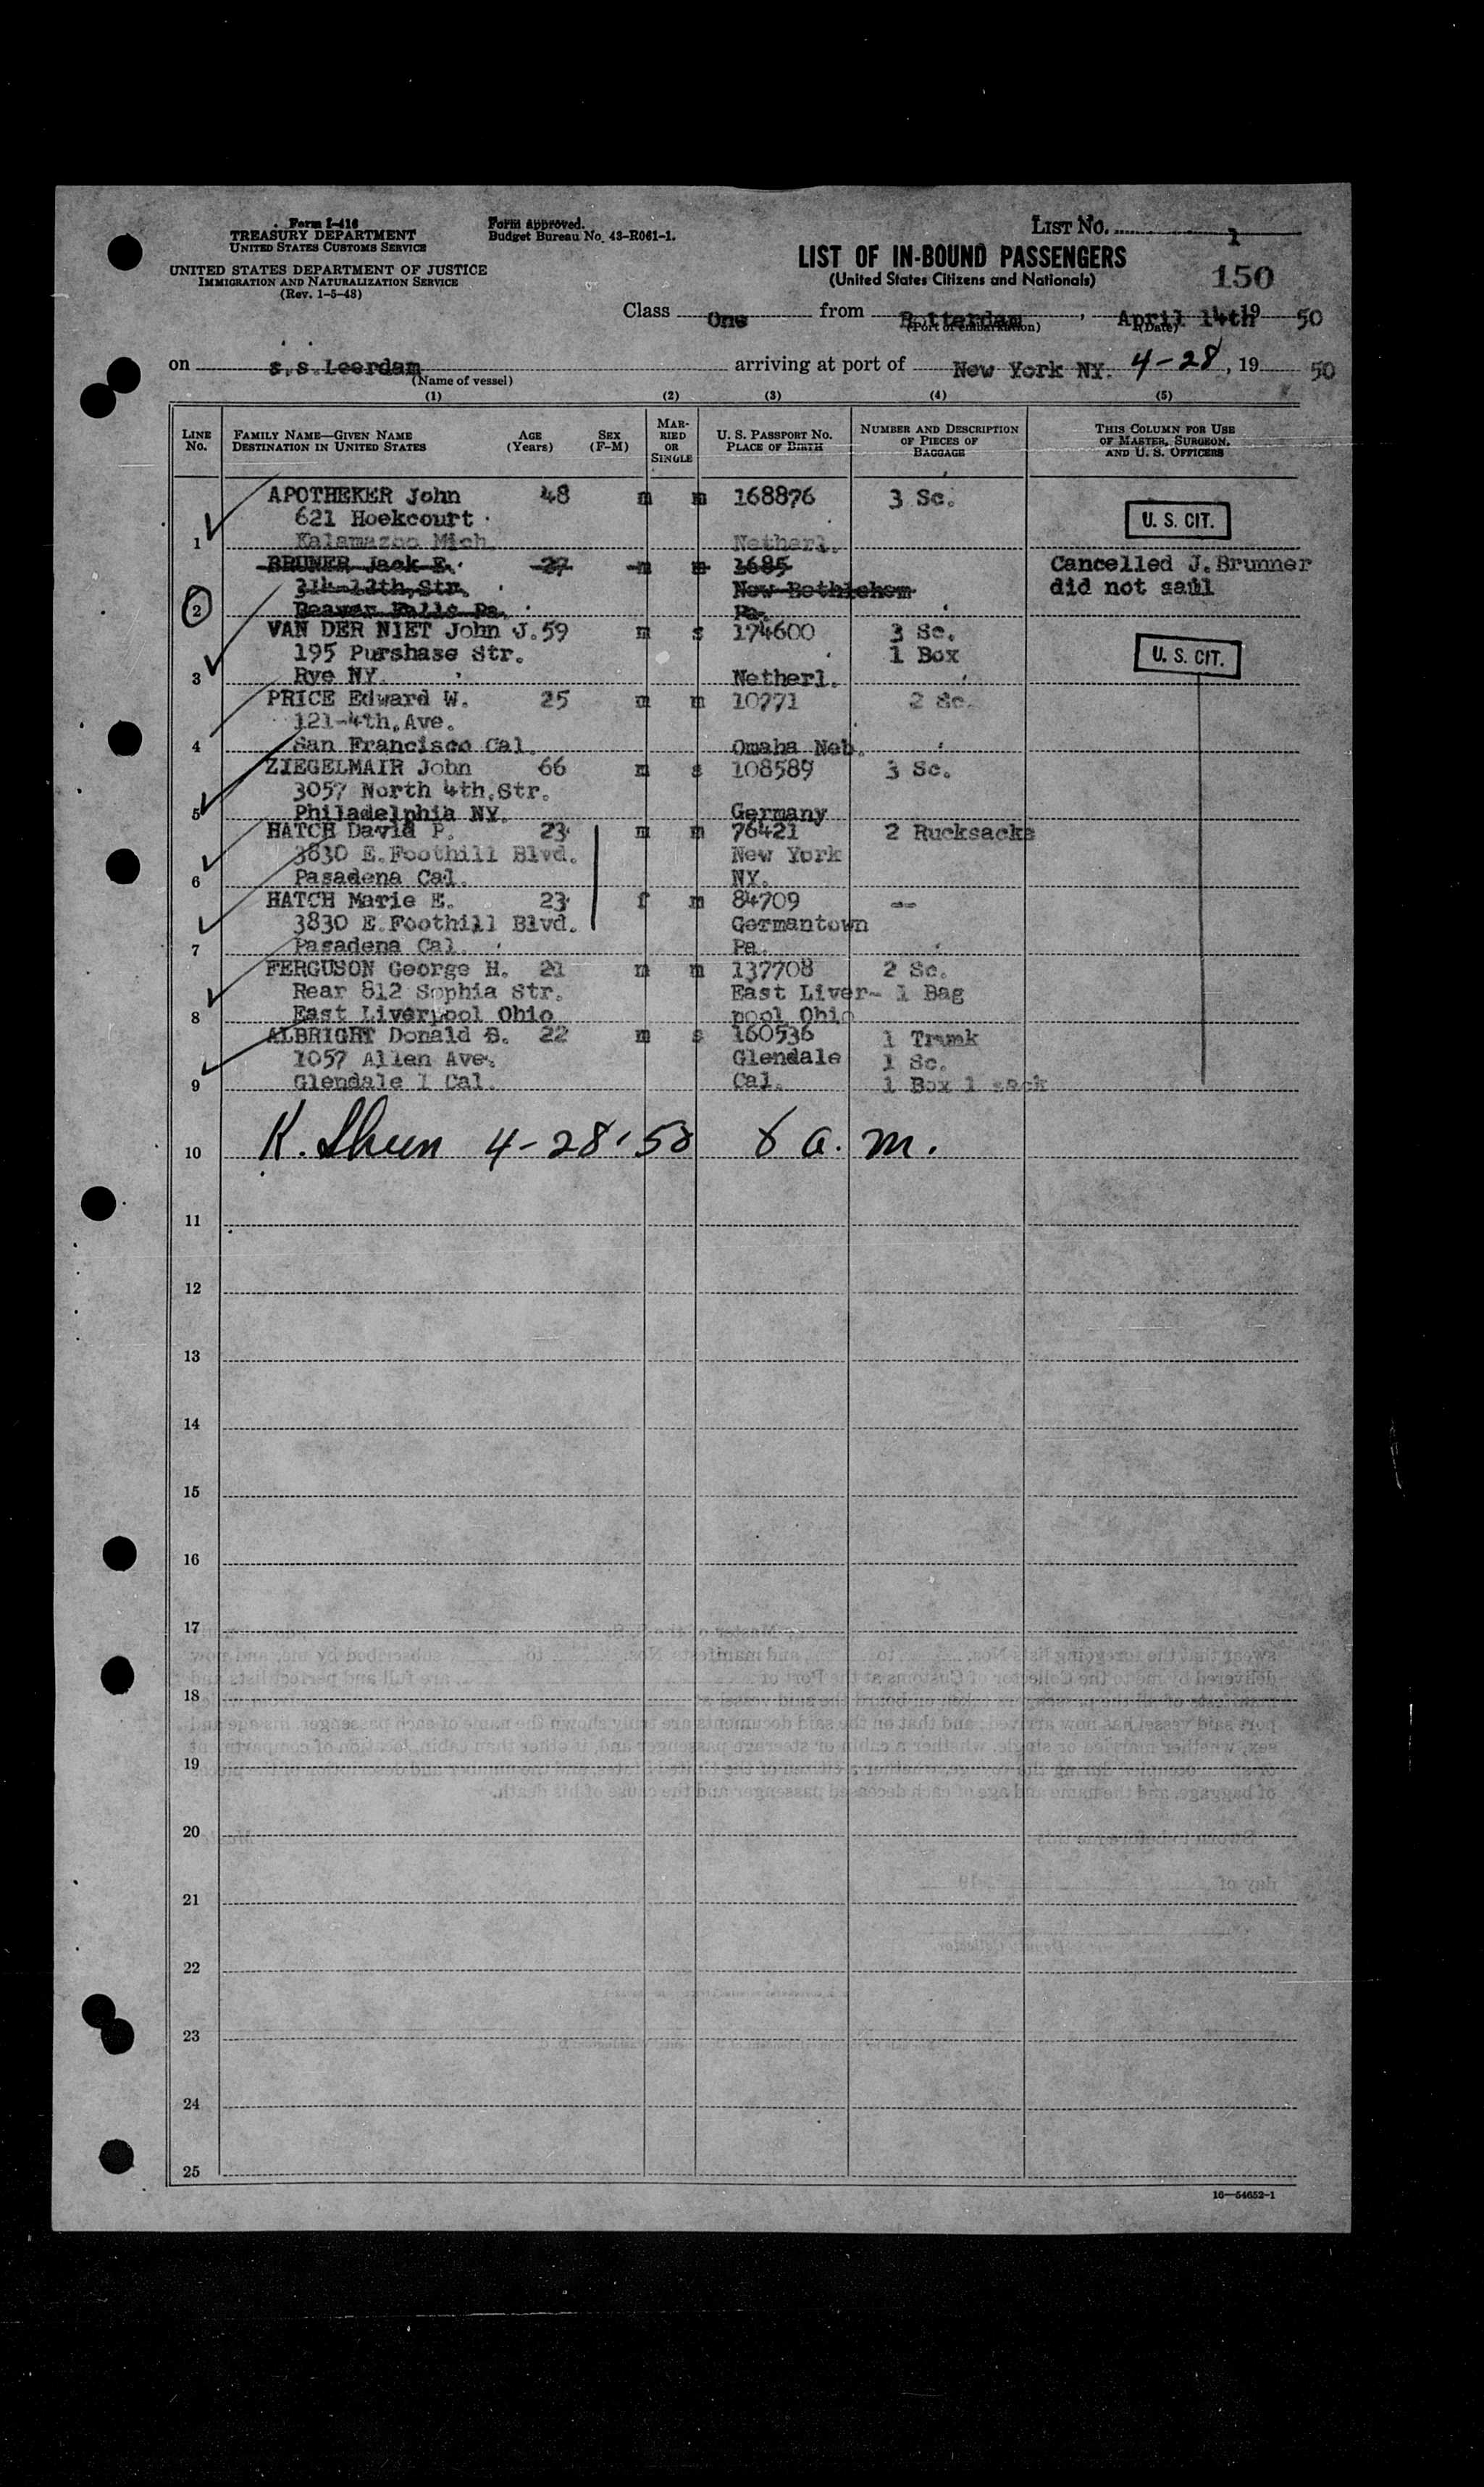 Form I-416
TREASURY DEPARTMENT
UNITED STATES CUSTOMS SERVICE
UNITED STATES DEPARTMENT OF JUSTICE
IMMIGRATION AND NATURALIZATION SERVICE
(Rev. 1-5-48)
Form approved.
Budget Bureau No. 43-R061-1.
LIST No. 1
LIST OF IN-BOUND PASSENGERS
(United States Citizens and Nationals)
150
Class One from Rotterdam, April 14th 19 50
(Port of embarkation) (Date)
on s.s. Leerdam arriving at port of New York NY. 4-28, 19 50
(Name of vessel)
(1) (2) (3) (4) (5)
LINE No. FAMILY NAME—GIVEN NAME DESTINATION IN UNITED STATES AGE (Years) SEX (F-M) MARRIED OR SINGLE U. S. PASSPORT NO. PLACE OF BIRTH NUMBER AND DESCRIPTION OF PIECES OF BAGGAGE THIS COLUMN FOR USE OF MASTER, SURGEON, AND U. S. OFFICERS
APOTHEKER John 48 m m 168876 3 Sc.
621 Hoekcourt U. S. CIT.
1 Kalamazoo Mich Netherl.
BRUNER Jack E. 27 m m 1685 Cancelled J. Brunner
12th, Str. New Bethlehem did not sail
2 Beaver Falls Pa. Pa.
VAN DER NIET John J. 59 m s 174600 3 Sc.
195 Purshase Str. 1 Box U. S. CIT.
3 Rye NY. Netherl.
PRICE Edward W. 25 m m 10771 2 Sc.
121-4th, Ave.
4 San Francisco Cal. Omaha Neb.
ZIEGELMAIR John 66 m s 108589 3 Sc.
3057 North 4th, Str.
5 Philadelphia NY. Germany
HATCH David P. 23 m m 76421 2 Rucksacks
3830 E. Foothill Blvd. New York
6 Pasadena Cal. NY.
HATCH Marie E. 23 f m 84709 --
3830 E. Foothill Blvd. Germantown
7 Pasadena Cal. Pa.
FERGUSON George H. 21 m m 137708 2 Sc.
Rear 812 Sophia Str. East Liver- 1 Bag
8 East Liverpool Ohio pool Ohio
ALBRIGHT Donald B. 22 m s 160536 1 Trunk
1057 Allen Ave. Glendale 1 Sc.
9 Glendale 1 Cal. Cal. 1 Box 1 sack
10 K. 4-28-50 8 a.m.
11
12
13
14
15
16
17
18
19
20
21
22
23
24
25
16—54652-1